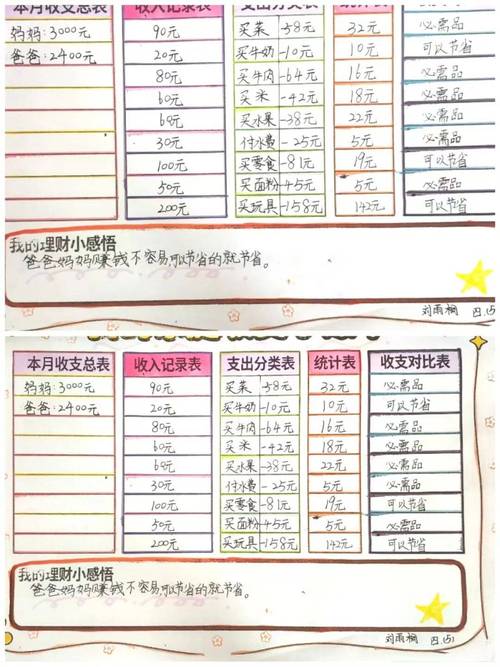 本月收支总表 收入记录表 支出分类表 统计表 收支对比表
妈妈:3000元 90元 买菜-58元 32元 必需品
爸爸:2400元 20元 买牛奶-10元 10元 可以节省
80元 买牛肉-64元 16元 必需品
60元 买米-42元 18元 必需品
60元 买水果-38元 22元 必需品
30元 付水费-25元 5元 必需品
100元 买零食-81元 19元 可以节省
50元 买面粉-45元 5元 必需品
200元 买玩具-158元 142元 可以节省
我的理财小感悟
爸爸妈妈赚钱不容易,可以节省的就节省。
刘雨桐 四.(5)
本月收支总表 收入记录表 支出分类表 统计表 收支对比表
妈妈:3000元 90元 买菜-58元 32元 必需品
爸爸:2400元 20元 买牛奶-10元 10元 可以节省
80元 买牛肉-64元 16元 必需品
60元 买米-42元 18元 必需品
60元 买水果-38元 22元 必需品
30元 付水费-25元 5元 必需品
100元 买零食-81元 19元 可以节省
50元 买面粉-45元 5元 必需品
200元 买玩具-158元 142元 可以节省
我的理财小感悟
爸爸妈妈赚钱不容易可以节省的就节省。
刘雨桐 四.(5)